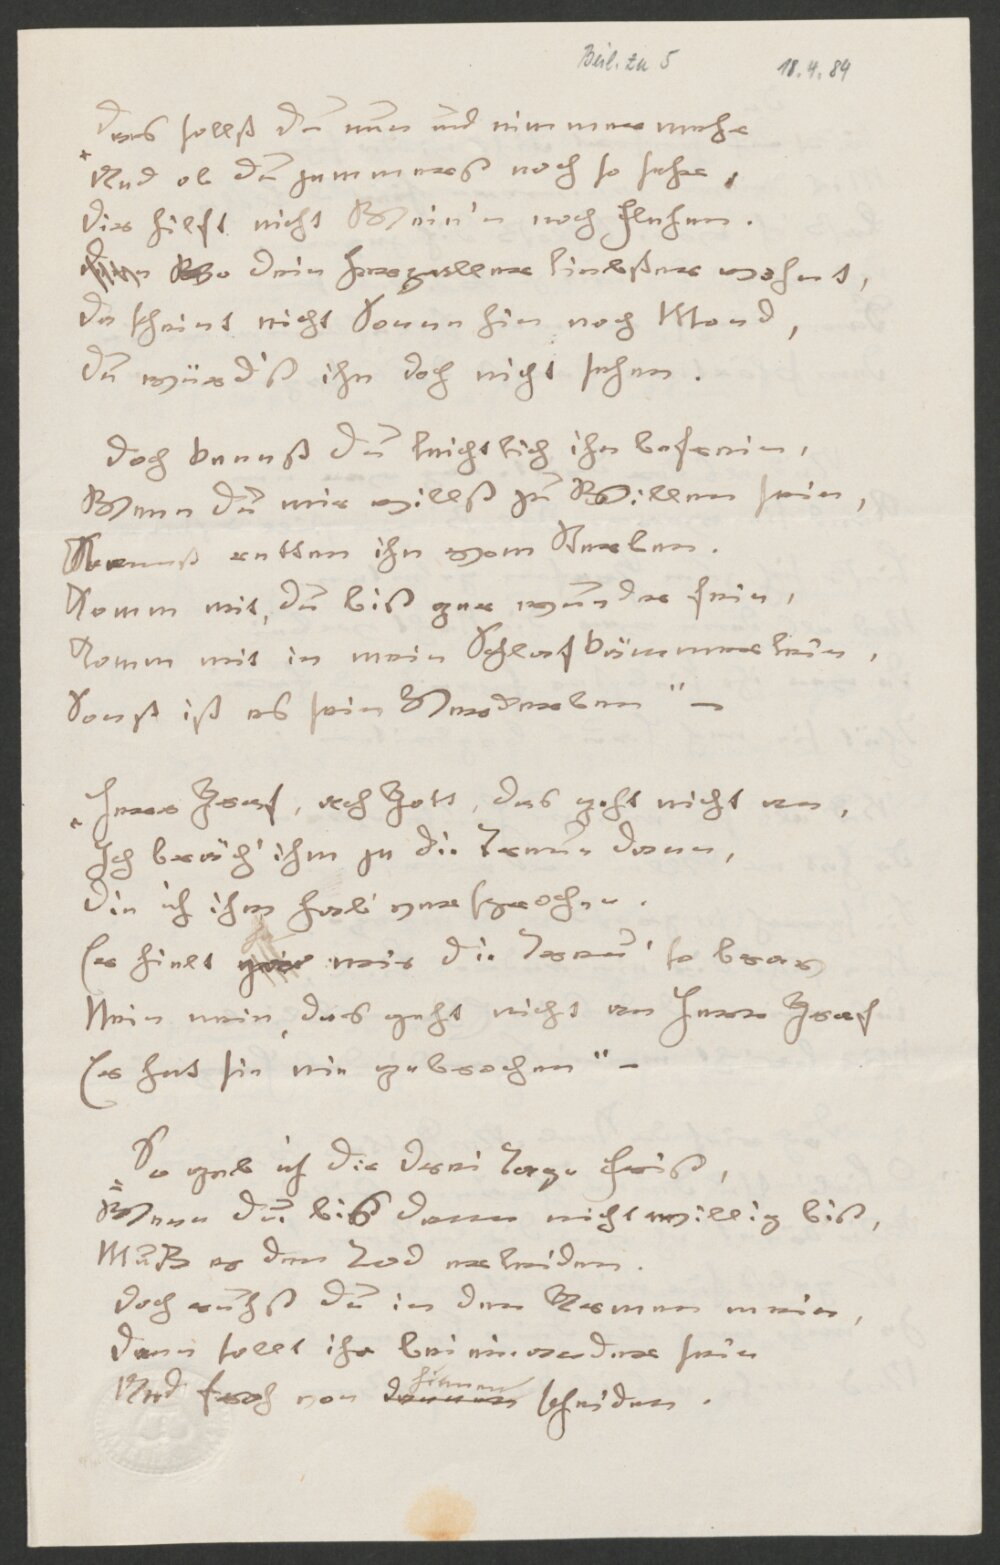 Beil. zu 5 18.4.84
Das sollst Du nun und nimmermehr
"Und ob Du jammerst noch so sehr,
Dir hilft nicht Wein'n noch Flehen.
Wo Dein herzallerliebster wohnt,
Da scheint nicht Sonne hin noch Mond,
Du würd'st ihn doch nicht sehen.
Doch kannst Du leichtlich ihn befrein,
Wenn Du mir willst zu Willen sein,
Kannst retten ihn vom Sterben.
Komm mit, Du bist gar wunderfein,
Komm mit in mein Schlafkämmerlein,
Sonst ist es sein Verderben" –
"Herr Graf, ach Gott, das geht nicht an,
Ich bräch' ihm ja die Treue dann,
Die ich ihm hab' versprochen.
Er hielt ja mir die Treu' so brav
Nein nein, das geht nicht an Herr Graf
Er hat sie nie gebrochen" –
"So geb ich Dir drei Tage Frist,
Wenn Du bis dann nicht willig bist,
Muß er den Tod erleiden.
Doch ruhst Du in den Armen mein,
Dann sollt ihr beieinander sein
Und froh von dannen hinnen scheiden.